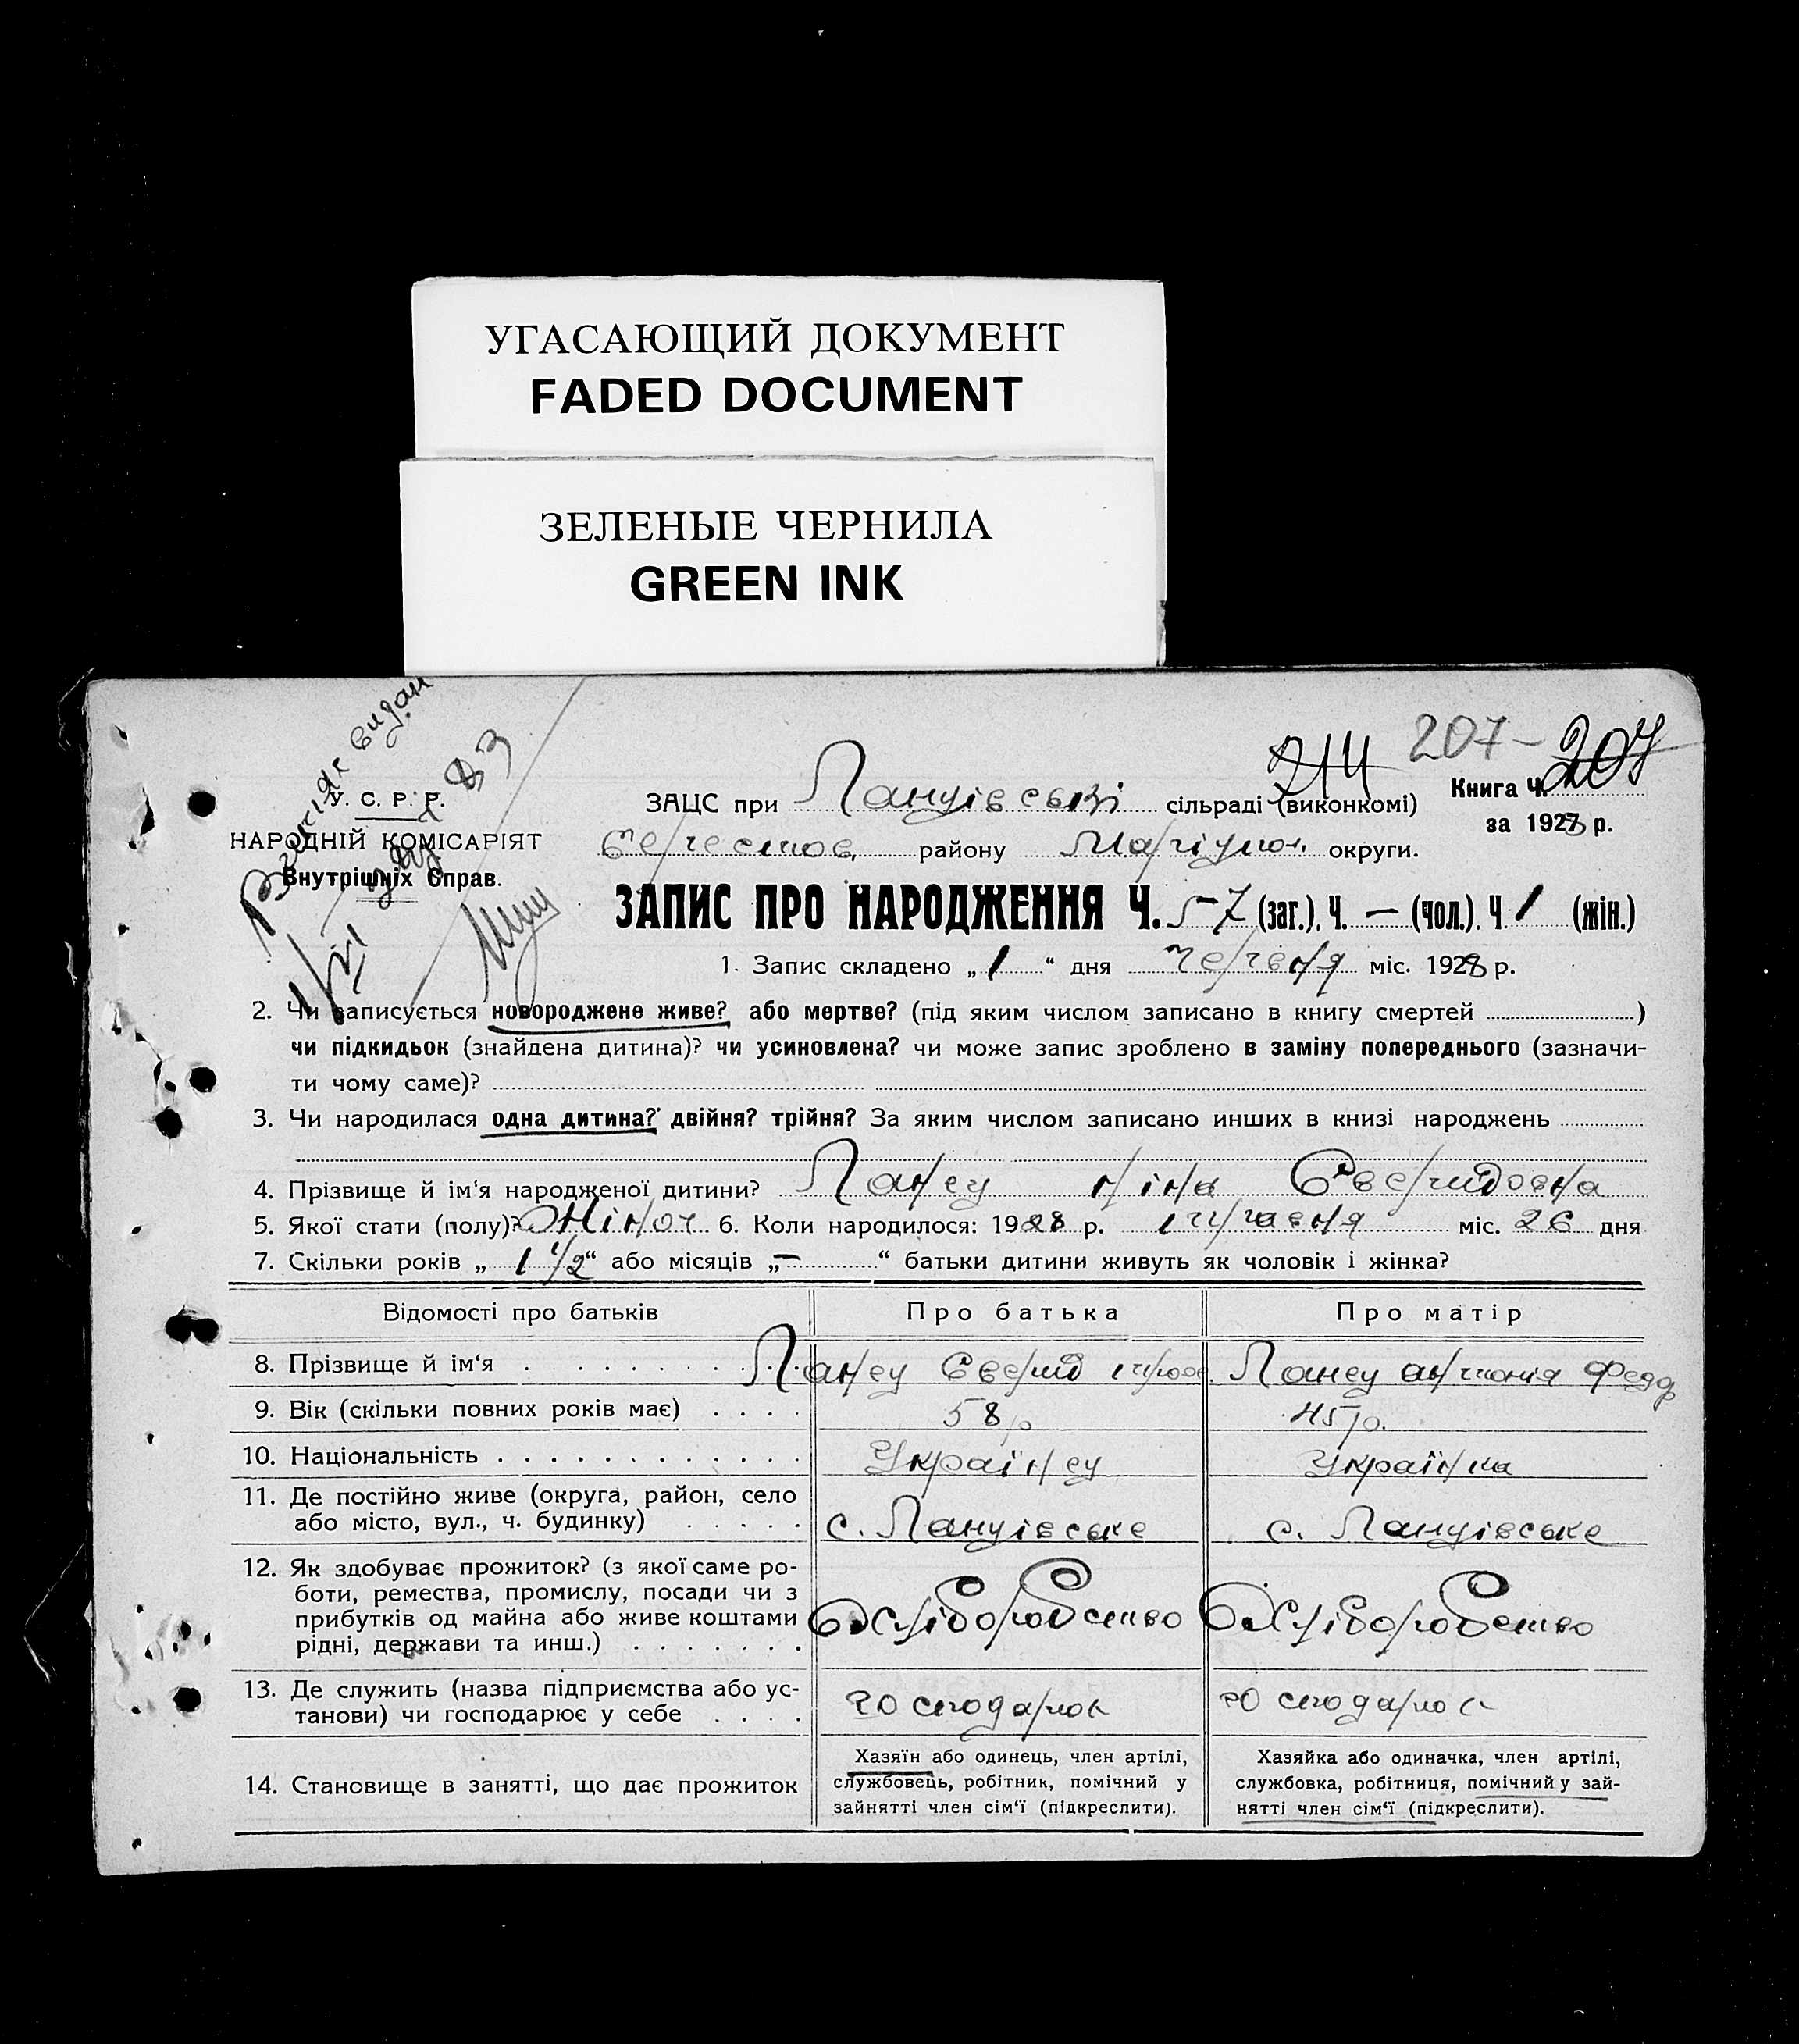 УГАСАЮЩИЙ ДОКУМЕНТ
FADED DOCUMENT
ЗЕЛЕНЫЕ ЧЕРНИЛА
GREEN INK
207 — 207
214
У. С. Р. Р.
НАРОДНІЙ КОМІСАРІЯТ
Внутрішніх Справ.
ЗАЦС при Ланцівській сільраді (виконкомі)
Книга Ч. 207
за 1928 р.
району Маріупол. округи.
ЗАПИС ПРО НАРОДЖЕННЯ Ч. 57 (заг.), Ч. — (чол.), Ч. 1 (жін.)
1. Запис складено „ 1 “ дня червня міс. 1928 р.
2. Чи записується новороджене живе? або мертве? (під яким числом записано в книгу смертей )
чи підкидьок (знайдена дитина)? чи усиновлена? чи може запис зроблено в заміну попереднього (зазначи-
ти чому саме)?
3. Чи народилася одна дитина? двійня? трійня? За яким числом записано инших в книзі народжень
4. Прізвище й ім'я народженої дитини? Ніна
5. Якої стати (полу)? Жіноч 6. Коли народилося: 1928 р. травня міс. 26 дня
7. Скільки років „ 1 1/2 “ або місяців „ — “ батьки дитини живуть як чоловік і жінка?
Відомості про батьків
Про батька
Про матір
8. Прізвище й ім'я
9. Вік (скільки повних років має) 58 р 45 р.
10. Національність Українец Українка
11. Де постійно живе (округа, район, село
або місто, вул., ч. будинку) с. Ланцівське с. Ланцівське
12. Як здобуває прожиток? (з якої саме ро-
боти, ремества, промислу, посади чи з
прибутків од майна або живе коштами
рідні, держави та инш.) Хліборобство Хліборобство
13. Де служить (назва підприємства або ус-
танови) чи господарює у себе
14. Становище в занятті, що дає прожиток
Хазяїн або одинець, член артілі,
службовець, робітник, помічний у
зайнятті член сім'ї (підкреслити).
Хазяйка або одиначка, член артілі,
службовка, робітниця, помічний у зай-
нятті член сім'ї (підкреслити).